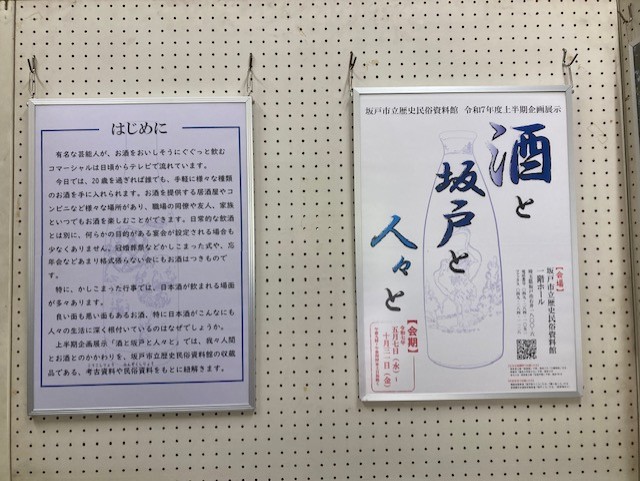 はじめに
有名な芸能人が、お酒をおいしそうにぐぐっと飲む
コマーシャルは日頃からテレビで流れています。
今日では、20歳を過ぎれば誰でも、手軽に様々な種類
のお酒を手に入れられます。お酒を提供する居酒屋やコ
ンビニなど様々な場所があり、職場の同僚や友人、家族
といつでもお酒を楽しむことができます。日常的な飲酒
とは別に、何らかの目的がある宴会が設定される場合も
少なくありません。冠婚葬祭などかしこまった式や、忘
年会などあまり格式張らない会にもお酒はつきもので
す。
特に、かしこまった行事では、日本酒が飲まれる場面
が多々あります。
良い面も悪い面もあるお酒、特に日本酒がこんなにも
人々の生活に深く根付いているのはなぜでしょうか。
上半期企画展示「酒と坂戸と人々と」では、我々人間
とお酒とのかかわりを、坂戸市立歴史民俗資料館の収蔵
品である、考古資料や民俗資料をもとに紐解きます。
坂戸市立歴史民俗資料館 令和7年度上半期企画展示
酒と
坂戸と
人々と
【会場】
坂戸市立歴史民俗資料館
一階ホール
【会期】
令和七年
五月七日(水)~
十月三一日(金)